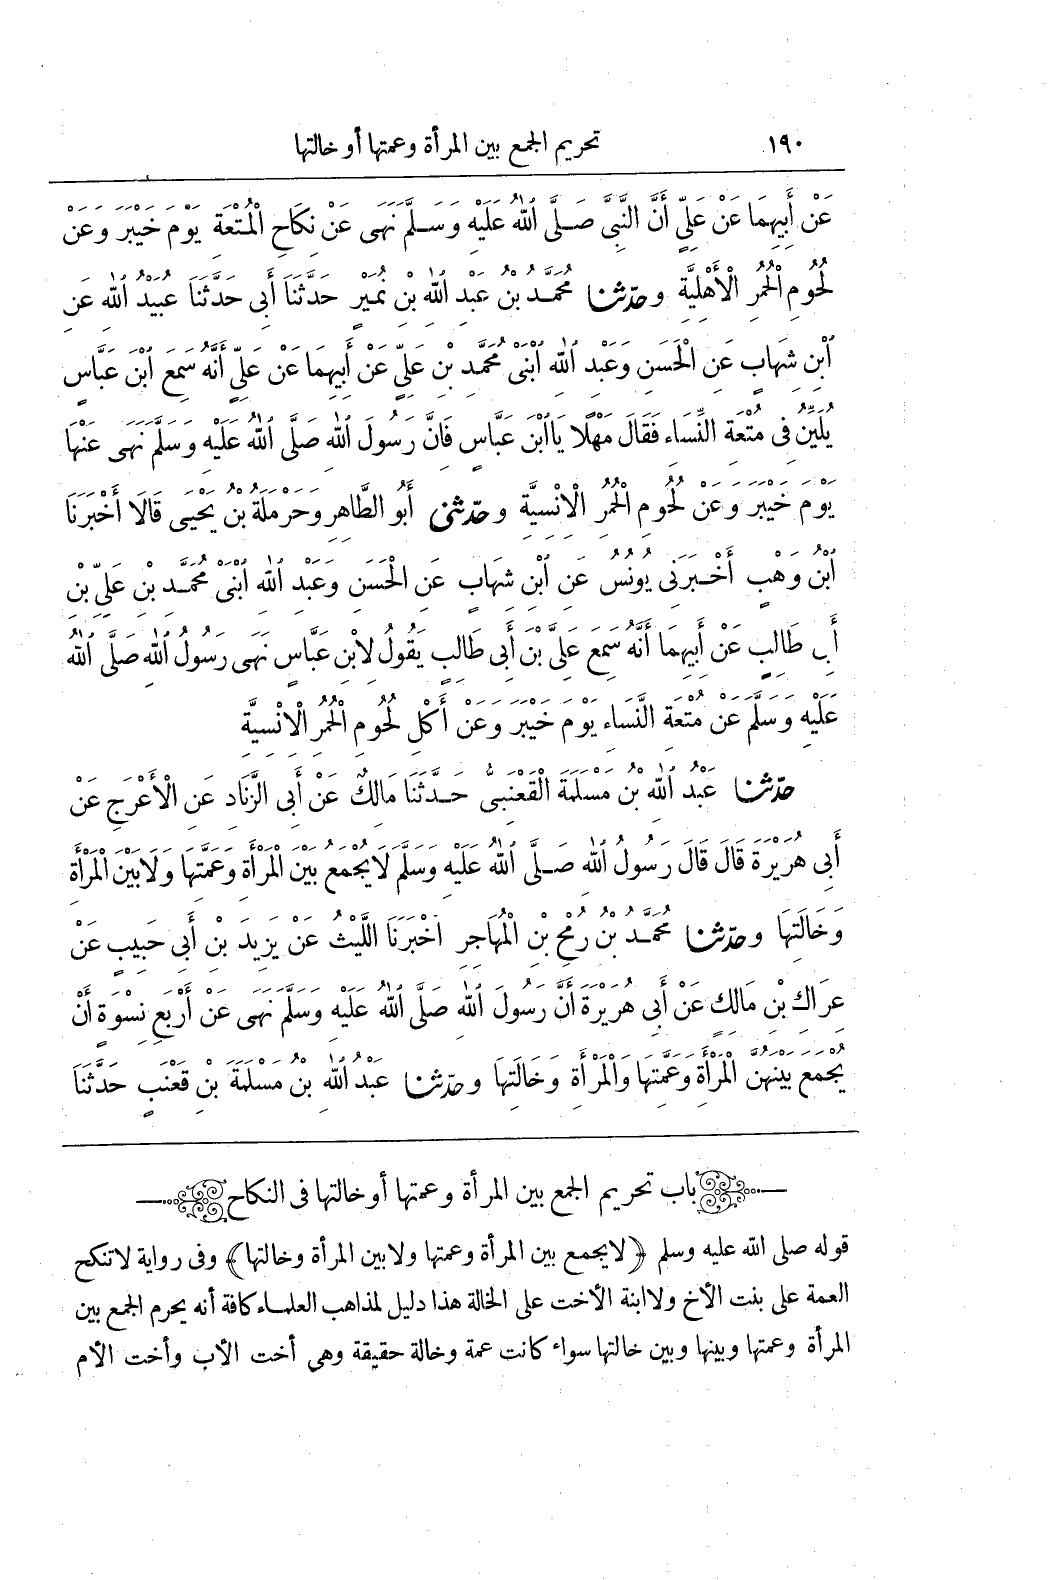 ١٩٠ تحريم الجمع بين المرأة وعمتها أو خالتها
عَنْ أَبِيهِمَا عَنْ عَلِيٍّ أَنَّ النَّبِىَّ صَلَّى ٱللهُ عَلَيْهِ وَسَلَّمَ نَهَى عَنْ نِكَاحِ الْمُتْعَةِ يَوْمَ خَيْبَرَ وَعَنْ
لُحُومِ الْحُمُرِ الْأَهْلِيَّةِ و حدّثنا مُحَمَّدُ بْنُ عَبْدِ اللهِ بْنِ نُمَيْرٍ حَدَّثَنَا أَبِى حَدَّثَنَا عُبَيْدُ اللهِ عَنِ
ٱبْنِ شِهَابٍ عَنِ الْحَسَنِ وَعَبْدِ اللهِ ٱبْنَىْ مُحَمَّدِ بْنِ عَلِيٍّ عَنْ أَبِيهِمَا عَنْ عَلِيٍّ أَنَّهُ سَمِعَ ٱبْنَ عَبَّاسٍ
يُلَيِّنُ فِى مُتْعَةِ النِّسَاءِ فَقَالَ مَهْلًا يَا ٱبْنَ عَبَّاسٍ فَإِنَّ رَسُولَ ٱللهِ صَلَّى ٱللهُ عَلَيْهِ وَسَلَّمَ نَهَى عَنْهَا
يَوْمَ خَيْبَرَ وَعَنْ لُحُومِ الْحُمُرِ الْإِنْسِيَّةِ و حدّثنى أَبُو الطَّاهِرِ وَحَرْمَلَةُ بْنُ يَحْيَى قَالَا أَخْبَرَنَا
ٱبْنُ وَهْبٍ أَخْبَرَنِى يُونُسُ عَنِ ٱبْنِ شِهَابٍ عَنِ الْحَسَنِ وَعَبْدِ ٱللهِ ٱبْنَىْ مُحَمَّدِ بْنِ عَلِيِّ بْنِ
أَبِى طَالِبٍ عَنْ أَبِيهِمَا أَنَّهُ سَمِعَ عَلِىَّ بْنَ أَبِى طَالِبٍ يَقُولُ لِابْنِ عَبَّاسٍ نَهَى رَسُولُ ٱللهِ صَلَّى ٱللهُ
عَلَيْهِ وَسَلَّمَ عَنْ مُتْعَةِ النِّسَاءِ يَوْمَ خَيْبَرَ وَعَنْ أَكْلِ لُحُومِ الْحُمُرِ الْإِنْسِيَّةِ
حدّثنا عَبْدُ ٱللهِ بْنُ مَسْلَمَةَ الْقَعْنَبِىُّ حَدَّثَنَا مَالِكٌ عَنْ أَبِى الزِّنَادِ عَنِ الْأَعْرَجِ عَنْ
أَبِى هُرَيْرَةَ قَالَ قَالَ رَسُولُ ٱللهِ صَلَّى ٱللهُ عَلَيْهِ وَسَلَّمَ لَا يُجْمَعُ بَيْنَ الْمَرْأَةِ وَعَمَّتِهَا وَلَا بَيْنَ الْمَرْأَةِ
وَخَالَتِهَا و حدّثنا مُحَمَّدُ بْنُ رُمْحِ بْنِ الْمُهَاجِرِ أَخْبَرَنَا اللَّيْثُ عَنْ يَزِيدَ بْنِ أَبِى حَبِيبٍ عَنْ
عِرَاكِ بْنِ مَالِكٍ عَنْ أَبِى هُرَيْرَةَ أَنَّ رَسُولَ ٱللهِ صَلَّى ٱللهُ عَلَيْهِ وَسَلَّمَ نَهَى عَنْ أَرْبَعِ نِسْوَةٍ أَنْ
يُجْمَعَ بَيْنَهُنَّ الْمَرْأَةِ وَعَمَّتِهَا وَالْمَرْأَةِ وَخَالَتِهَا و حدّثنا عَبْدُ اللهِ بْنُ مَسْلَمَةَ بْنِ قَعْنَبٍ حَدَّثَنَا
باب تحريم الجمع بين المرأة وعمتها أو خالتها فى النكاح
قوله صلى الله عليه وسلم ﴿لا يجمع بين المرأة وعمتها ولا بين المرأة وخالتها﴾ وفى رواية لا تنكح
العمة على بنت الأخ ولا ابنة الأخت على الخالة هذا دليل لمذاهب العلماء كافة أنه يحرم الجمع بين
المرأة وعمتها وبينها وبين خالتها سواء كانت عمة وخالة حقيقة وهى أخت الأب وأخت الأم